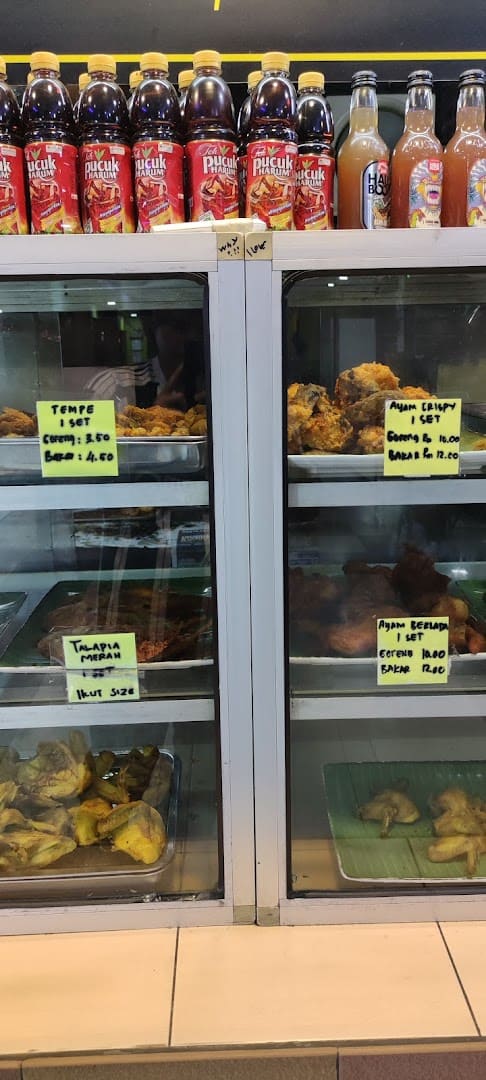 Teh
PUCUK
HARUM
Teh
PUCUK
HARUM
Teh
PUCUK
HARUM
Teh
PUCUK
HARUM
WHY
!!!
I LOVE
TEMPE
1 SET
Goreng : 3.50
Bakar : 4.50
AYAM CRISPY
1 SET
Goreng Rm 10.00
BAKAR Rm 12.00
TALAPIA
MERAH
1 SET
IKUT SIZE
AYAM BERLADA
1 SET
GORENG 10.00
BAKAR 12.00